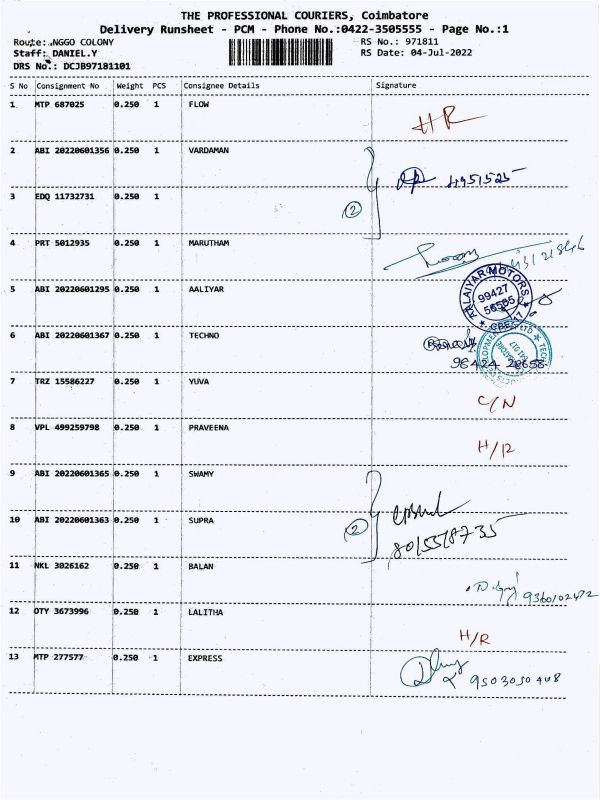 THE PROFESSIONAL COURIERS, Coimbatore
Delivery Runsheet - PCM - Phone No.:0422-3505555 - Page No.:1
Route: NGGO COLONY RS No.: 971811
Staff: DANIEL.Y RS Date: 04-Jul-2022
DRS No.: DCJB97181101
S No Consignment No Weight PCS Consignee Details Signature
1 MTP 687025 0.250 1 FLOW
HR
2 ABI 20220601356 0.250 1 VARDAMAN
3 EDQ 11732731 0.250 1
2
4 PRT 5012935 0.250 1 MARUTHAM
5 ABI 20220601295 0.250 1 AALIYAR
KALAIYAR MOTORS
99427
56565
CBE
6 ABI 20220601367 0.250 1 TECHNO
7 TRZ 15586227 0.250 1 YUVA
C/N
8 VPL 499259798 0.250 1 PRAVEENA
H/R
9 ABI 20220601365 0.250 1 SWAMY
10 ABI 20220601363 0.250 1 SUPRA
2
11 NKL 3026162 0.250 1 BALAN
9360102472
12 OTY 3673996 0.250 1 LALITHA
H/R
13 MTP 277577 0.250 1 EXPRESS
9503050408